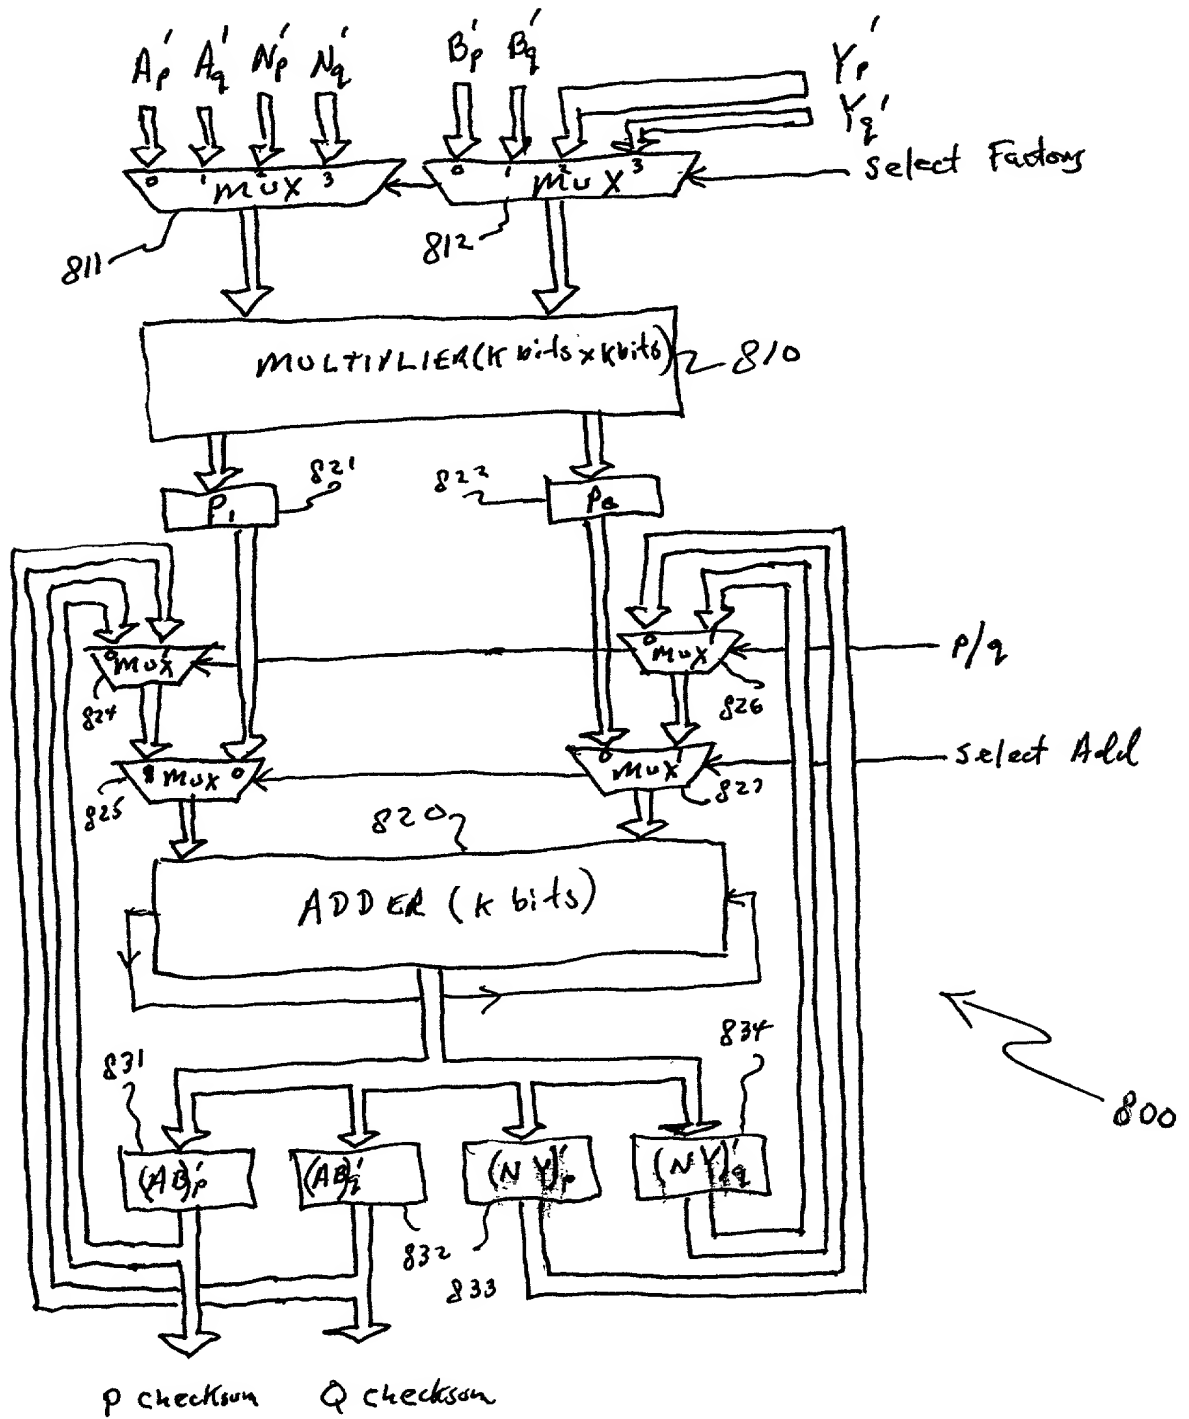 Ap' Aq' Np' Nq' Bp' Bq' Yp'
Yq'
Select Factors
0 1 2 MUX 3
0 1 2 MUX 3
811
812
MULTIPLIER (K bits x K bits)
810
821
822
P1
P0
0 MUX 1
0 MUX 1
P/q
824
826
MUX 0
0 MUX 1
Select Add
825
827
820
ADDER (K bits)
834
831
800
(AB)p'
(AB)q'
(NY)p'
(NY)q'
832
833
P checksum Q checksum